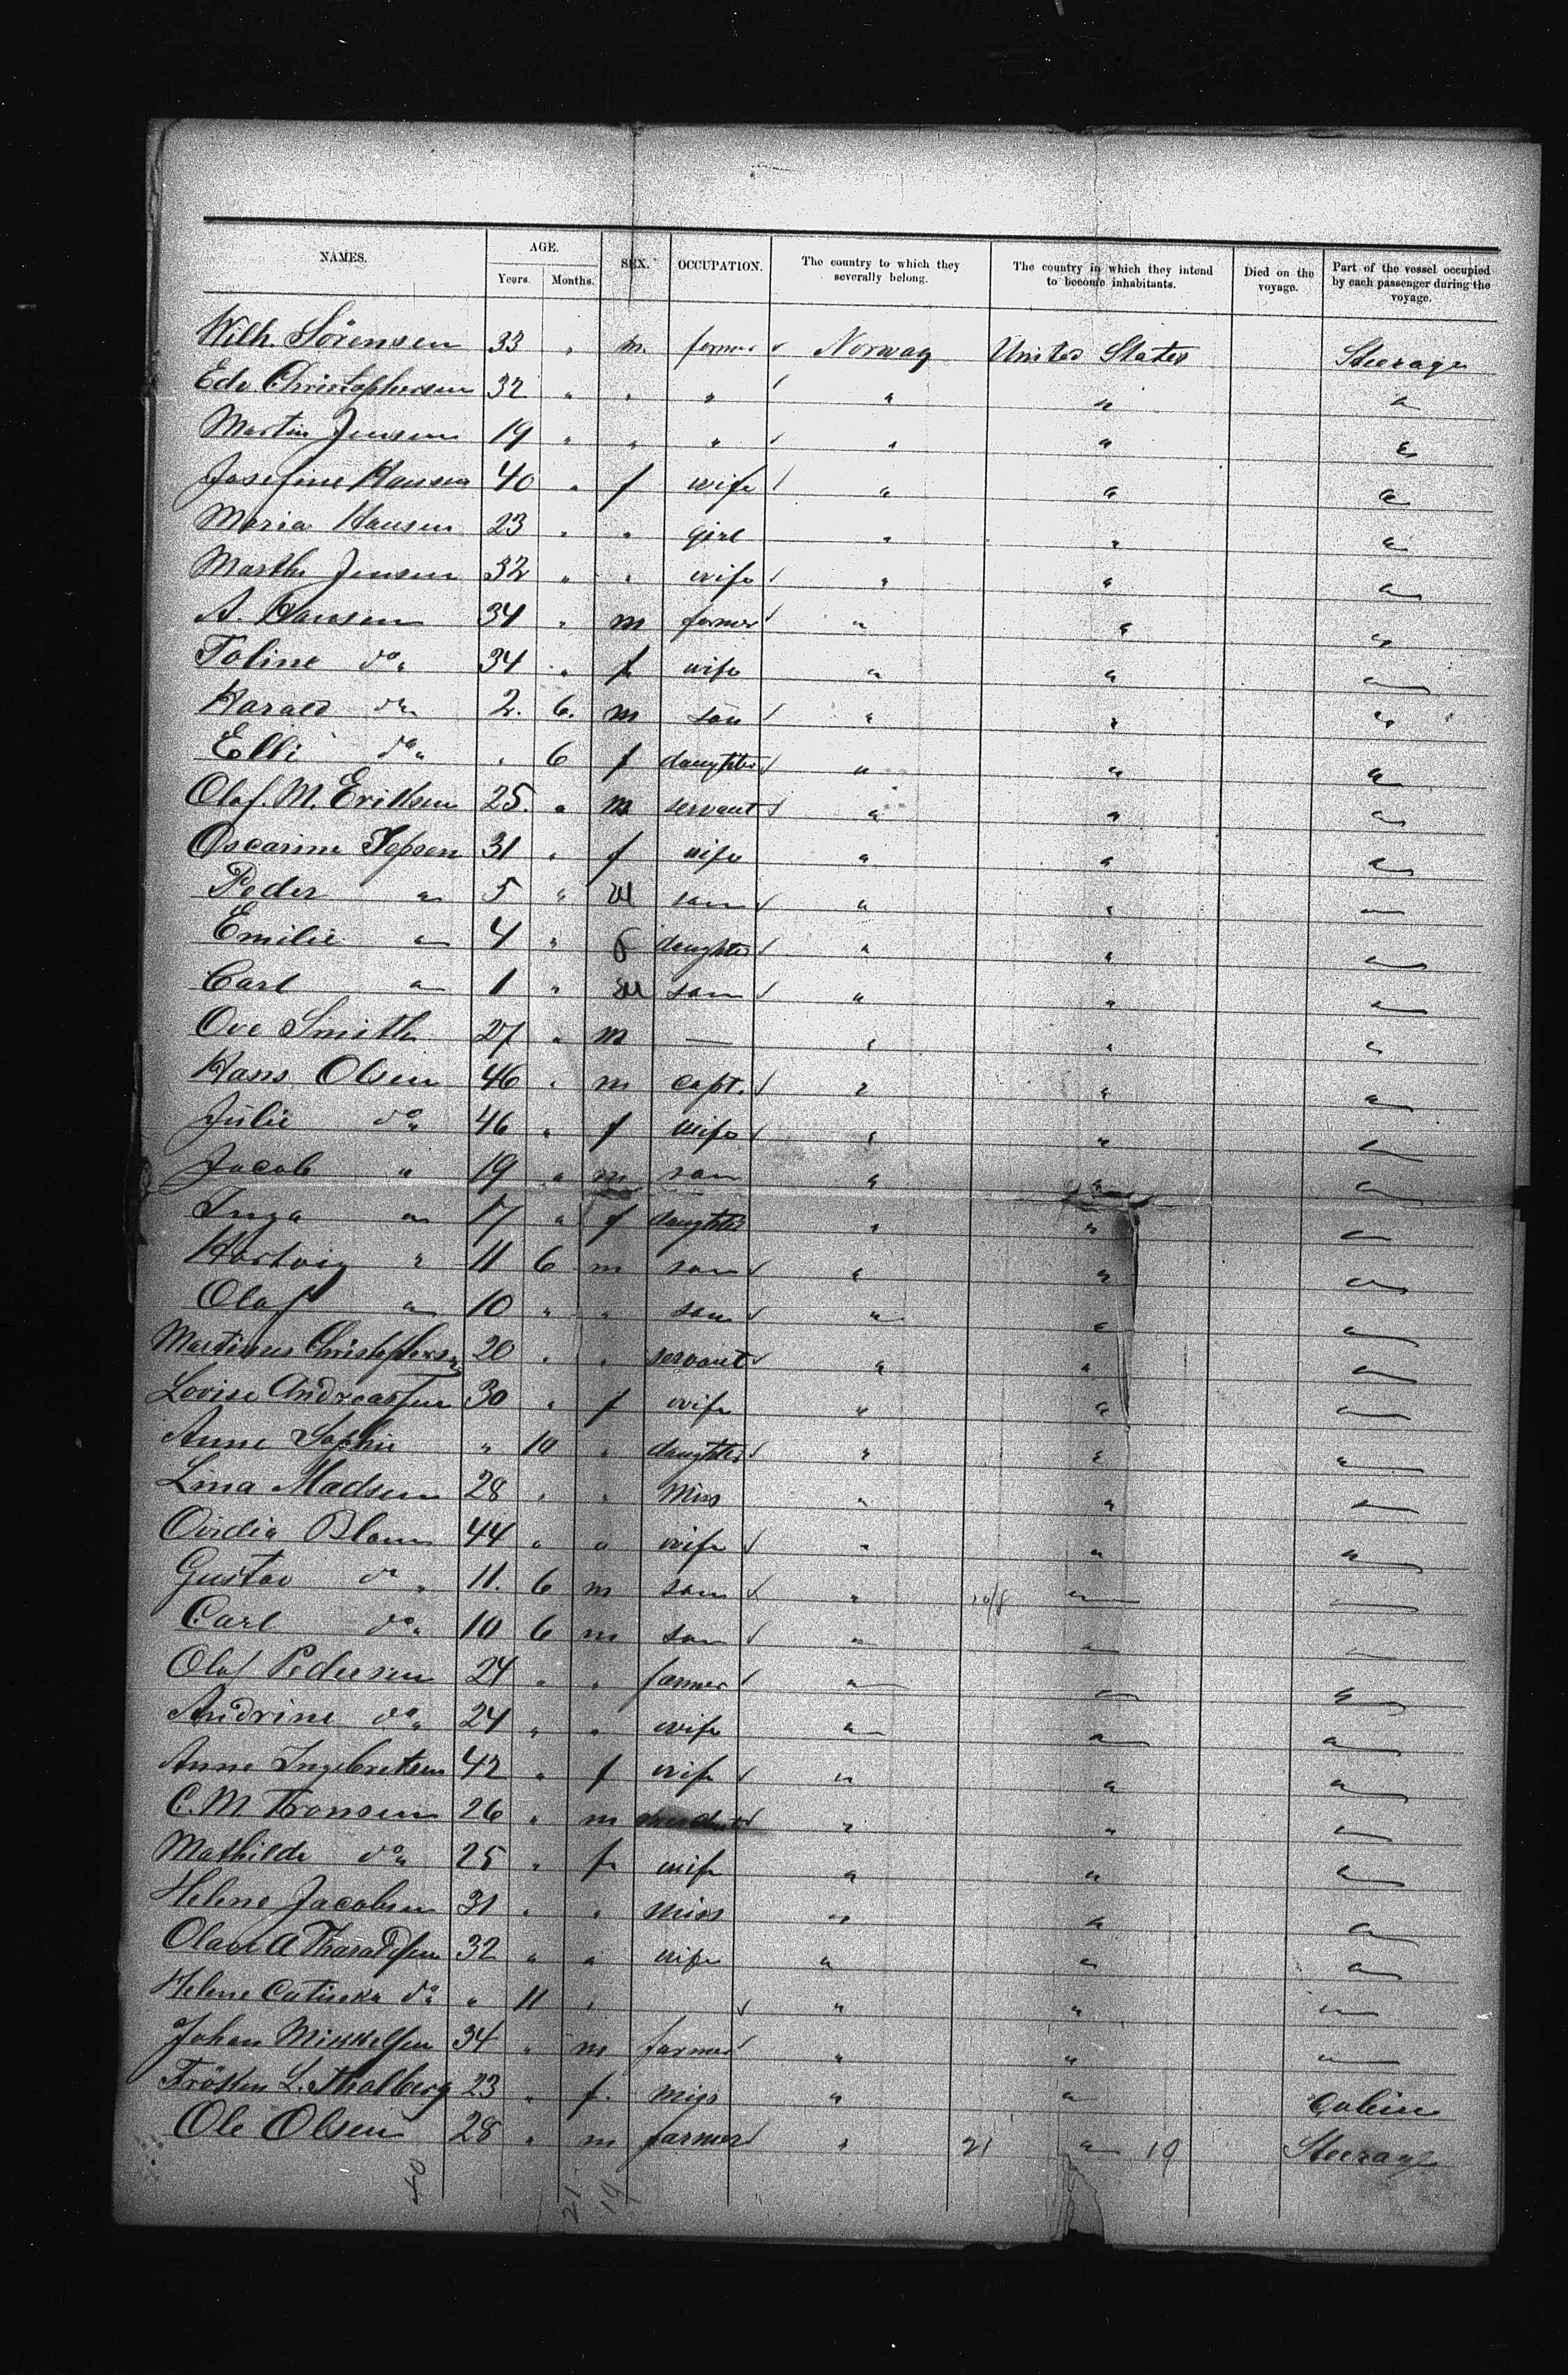 NAMES. AGE. SEX. OCCUPATION. The country to which they severally belong. The country in which they intend to become inhabitants. Died on the voyage. Part of the vessel occupied by each passenger during the voyage.
Years. Months.
Wilh. Sörensen 33 " m. farmer √ Norway United States Steerage
Edv. Christophersen 32 " " " √ " " "
Martin Jensen 19 " " " √ " " "
Josefine Hansen 40 " f wife √ " " "
Maria Hansen 23 " " girl " " "
Marthe Jensen 32 " " wife √ " " "
A. Hansen 34 " m farmer √ " " "
Toline do " 34 " f wife " " "
Harald do " 2. 6. m son √ " " "
Elli do " " 6 f daughter √ " " "
Olaf. M. Eriksen 25. " m servant √ " " "
Oscarine Jepsen 31 " f wife " " "
Peder " 5 " M son √ " " "
Emilie " 4 " f daughter √ " " "
Carl " 1 " M son √ " " "
Ove Smith 27 " m — " " "
Hans Olsen 46 " m capt. √ " " "
Julie do " 46 " f wife √ " " "
Jacob " 19 " m son " " "
Inga " 17 " f daughter " " "
Hartvig " 11 6 m son √ " " "
Olaf " 10 " " son √ " " "
Martinus Christophersen 20 " " servant √ " " "
Lovise Andreassen 30 " f wife " " "
Anne Sophie " 10 " daughter √ " " "
Lina Madsen 28 " " Miss " " "
Blom 44 " " wife √ " " "
Gustav do " 11. 6 m son √ " 10/8 " "
Carl do " 10 6 m son √ " " "
Olaf Pedersen 24 " " farmer √ " " "
Andrine do " 24 " " wife " " "
Anne Ingebretsen 42 " f wife √ " " "
C. M. Tronsen 26 " m √ " " "
Mathilde do " 25 " f wife " " "
Helene Jacobsen 31 " " Miss " " "
A Tharaldsen 32 " " wife " " "
Helene Catinka do " " 11 " √ " " "
Johan Mikkelsen 34 " m farmer √ " " "
Fröken L. Thalberg 23 " f. Miss " " Cabin
Ole Olsen 28 " m farmer √ " 21 " 19 Steerage
40 21 19